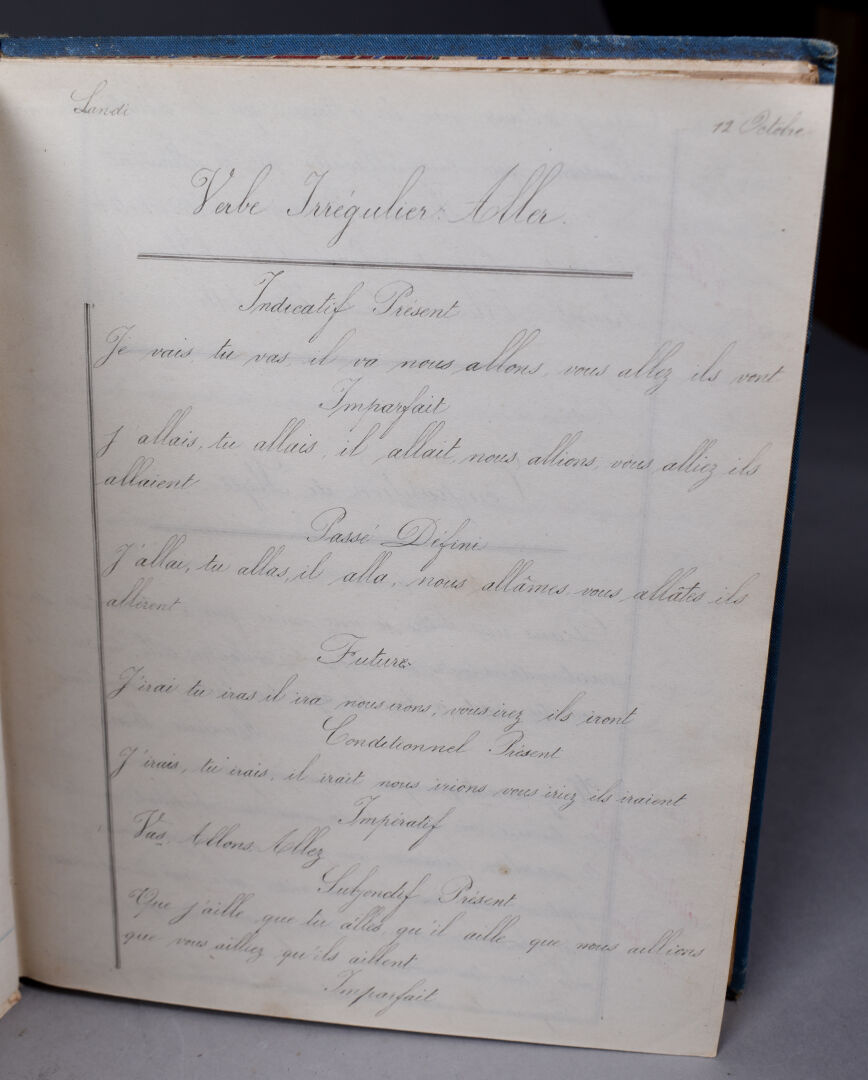 Lundi
12 Octobre
Verbe Irrégulier: Aller.
Indicatif Présent
Je vais, tu vas, il va nous allons, vous allez ils vont
Imparfait
J'allais, tu allais, il allait, nous allions, vous alliez ils
allaient
Passé Défini
J'allai, tu allas, il alla, nous allâmes, vous allâtes ils
allèrent
Future
J'irai tu iras il ira nous irons, vous irez ils iront
Conditionnel Présent
J'irais, tu irais, il irait nous irions vous iriez ils iraient
Impératif
Vas, Allons, Allez
Subjonctif Présent
Que j'aille, que tu ailles, qu'il aille que nous aillions
que vous ailliez qu'ils aillent
Imparfait